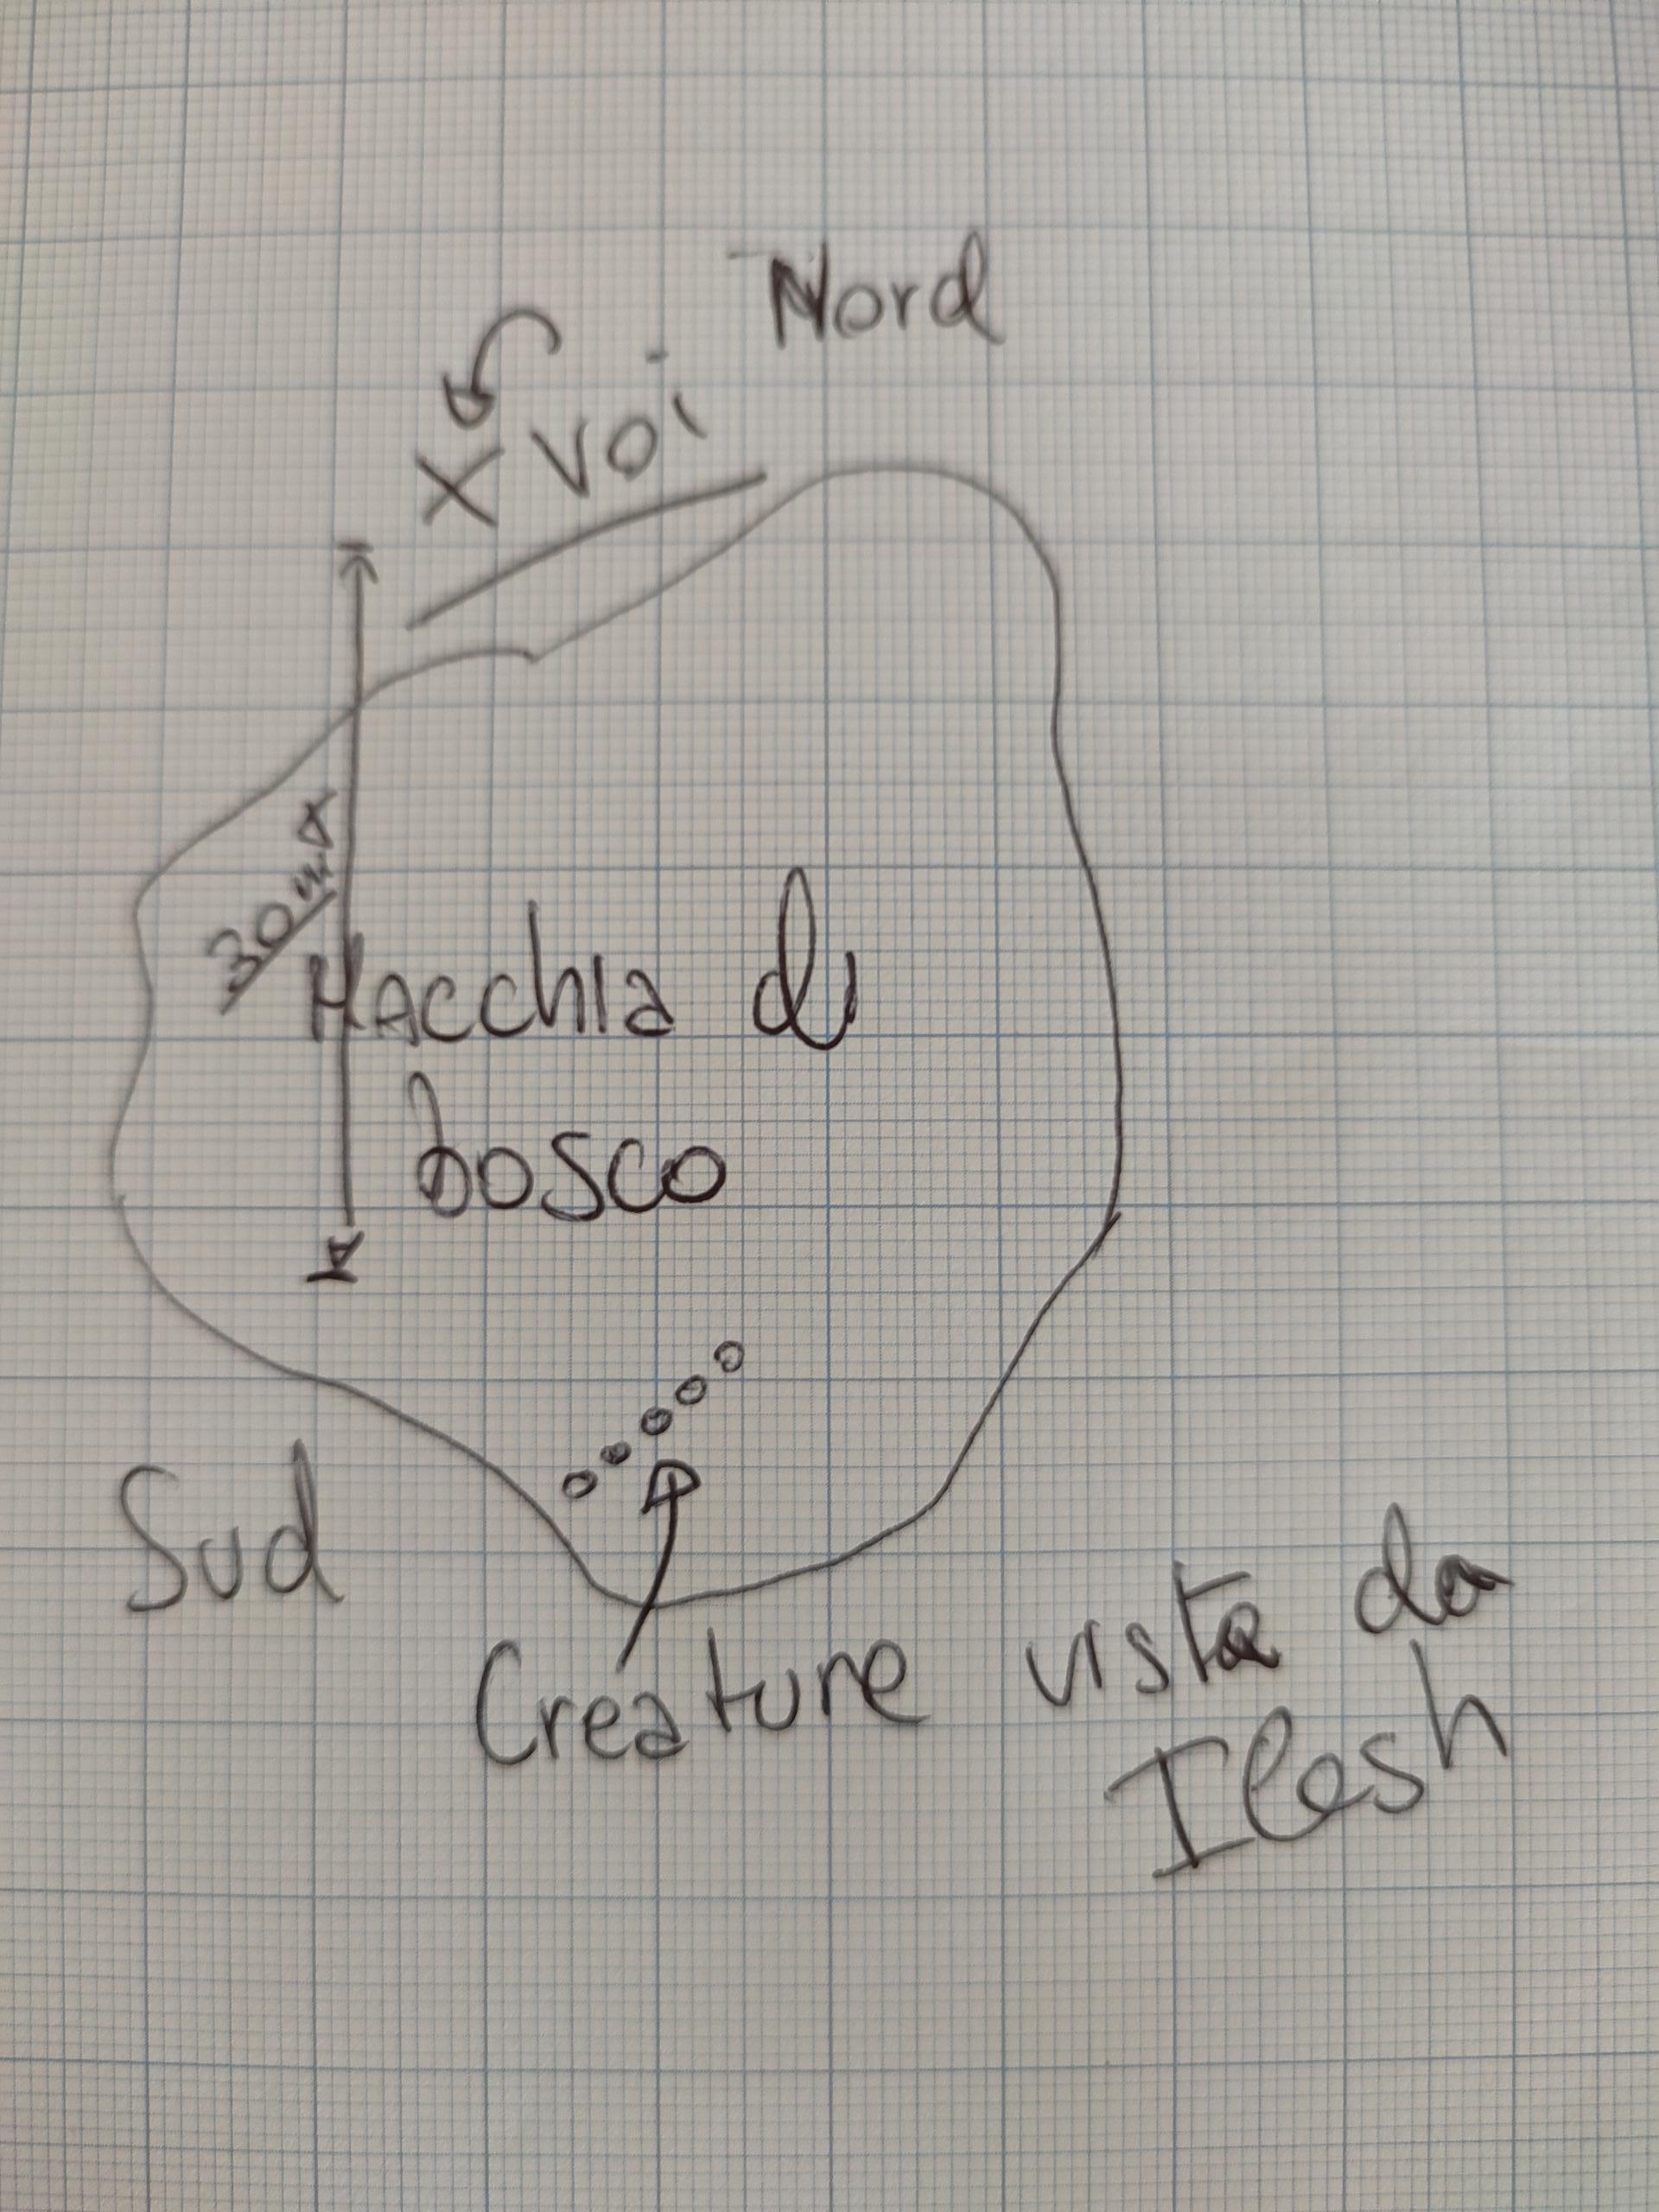 Nord
X voi
30 mt
Macchia di
bosco
Sud
Creature viste da
Ilesh